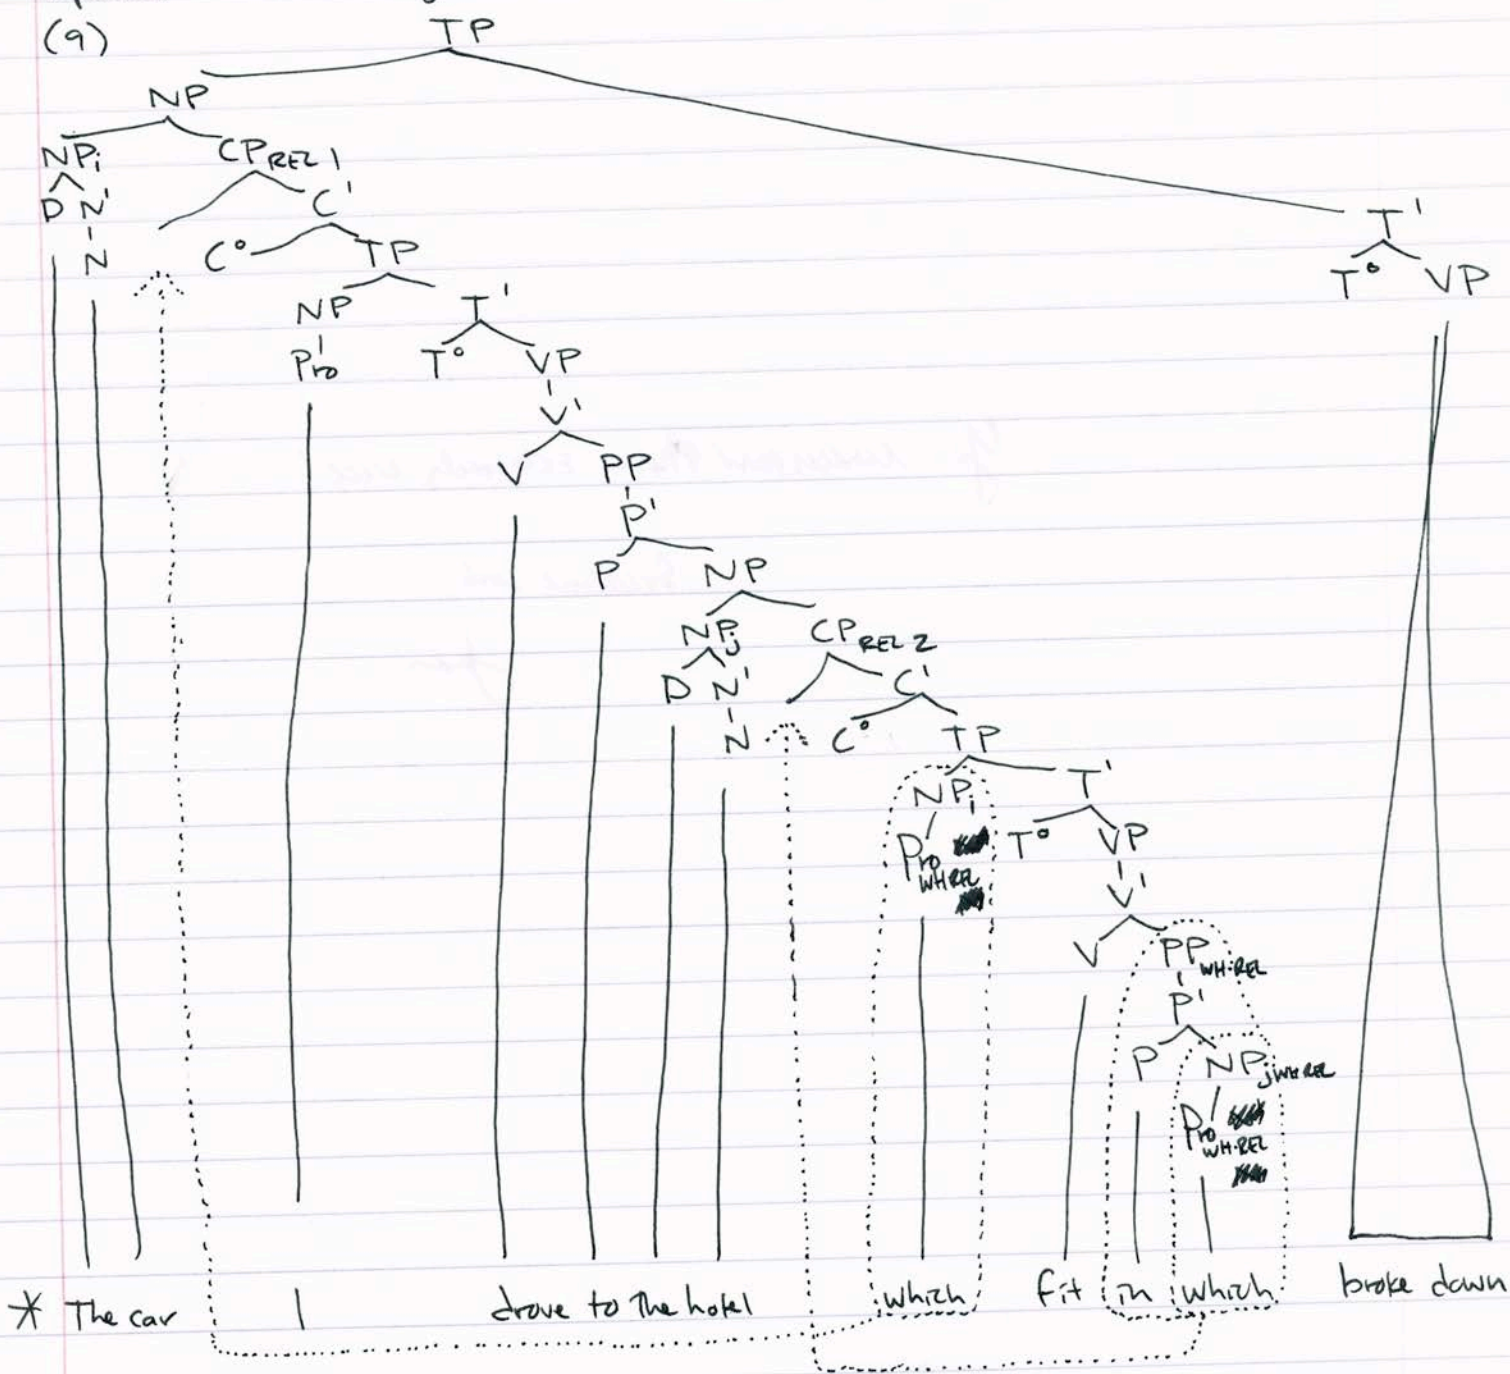 (9)
TP
NP
NPi CP REL 1
D N' C' T'
N C° TP T° VP
NP T'
Pro T° VP
V'
V PP
P'
P NP
NPj CP REL 2
D N' C'
N C° TP
NPi T'
Pro WH REL T° VP
V'
V PP WH-REL
P'
P NP j WH REL
Pro WH-REL
* The car I drove to the hotel which fit in which broke down